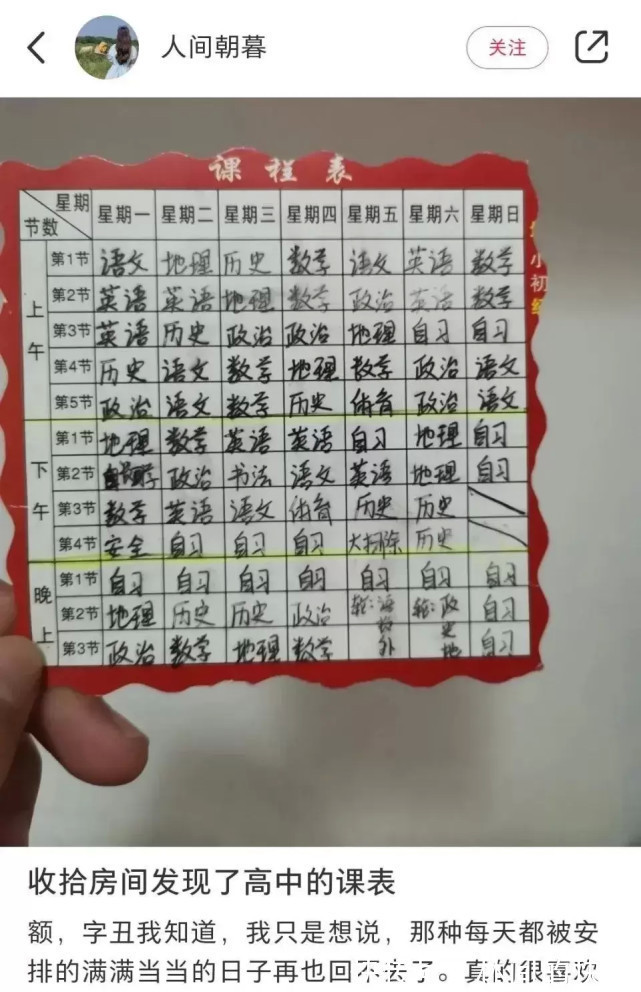 人间朝暮
关注
课程表
星期 节数 星期一 星期二 星期三 星期四 星期五 星期六 星期日
上午
第1节 语文 地理 历史 数学 语文 英语 数学
第2节 英语 英语 地理 数学 政治 英语 数学
第3节 英语 历史 政治 政治 地理 自习 自习
第4节 历史 语文 数学 地理 数学 政治 语文
第5节 政治 语文 数学 历史 体育 政治 语文
下午
第1节 地理 数学 英语 英语 自习 地理 自习
第2节 政治 书法 语文 英语 地理 自习
第3节 数学 英语 语文 体育 历史 历史
第4节 安全 自习 自习 自习 大扫除 历史
晚上
第1节 自习 自习 自习 自习 自习 自习 自习
第2节 地理 历史 历史 政治 轮:语数外 轮:政史地 自习
第3节 政治 数学 地理 数学 自习
小初
收拾房间发现了高中的课表
额，字丑我知道，我只是想说，那种每天都被安
排的满满当当的日子再也回不去了。真的很喜欢